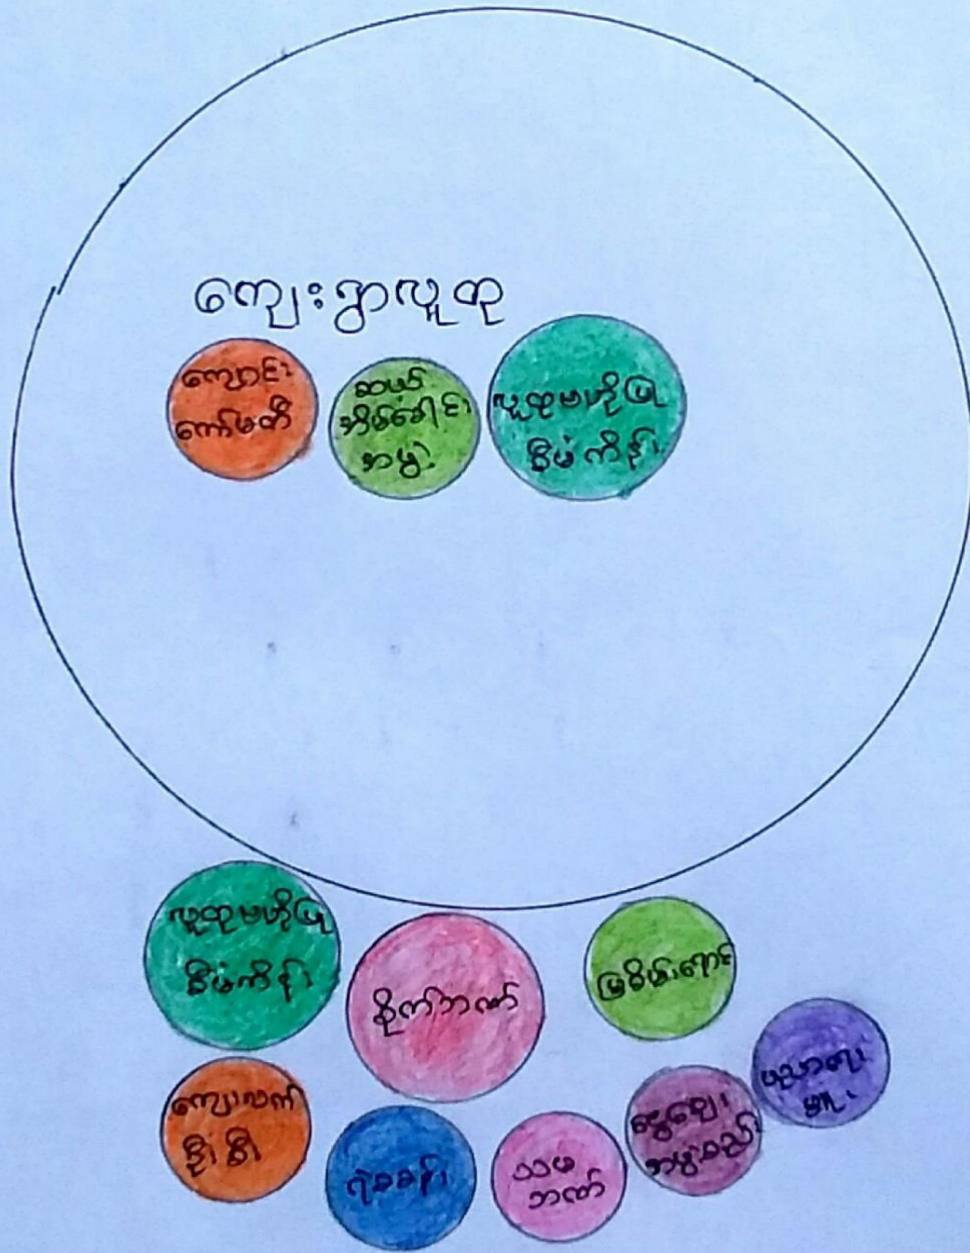 ကျေးရွာလူထု
ကျောင်း
ကော်မတီ
ဆယ်
အိမ်ခေါင်း
အဖွဲ့
လူထုဗဟိုပြု
စီမံကိန်း
လူထုဗဟိုပြု
စီမံကိန်း
စိုက်ဘဏ်
မြစိမ်းရောင်
ကျေးလက်
ဦးစီး
ရဲစခန်း
သမ
ဘဏ်
ငွေချေး
အဖွဲ့အစည်း
ပညာရေး
မှူး